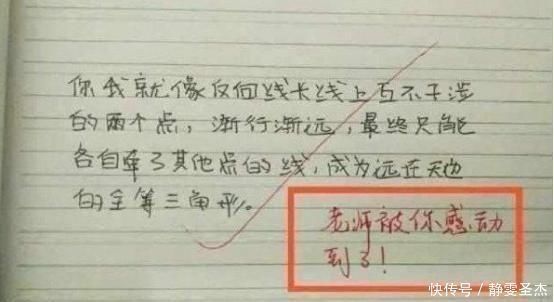 你我就像反向线长线上互不干涉
的两个点，渐行渐远，最终只能
各自牵了其他点的线，成为远在天边
的全等三角形。
老师被你感动
到了！
快传号 / 静雯圣杰